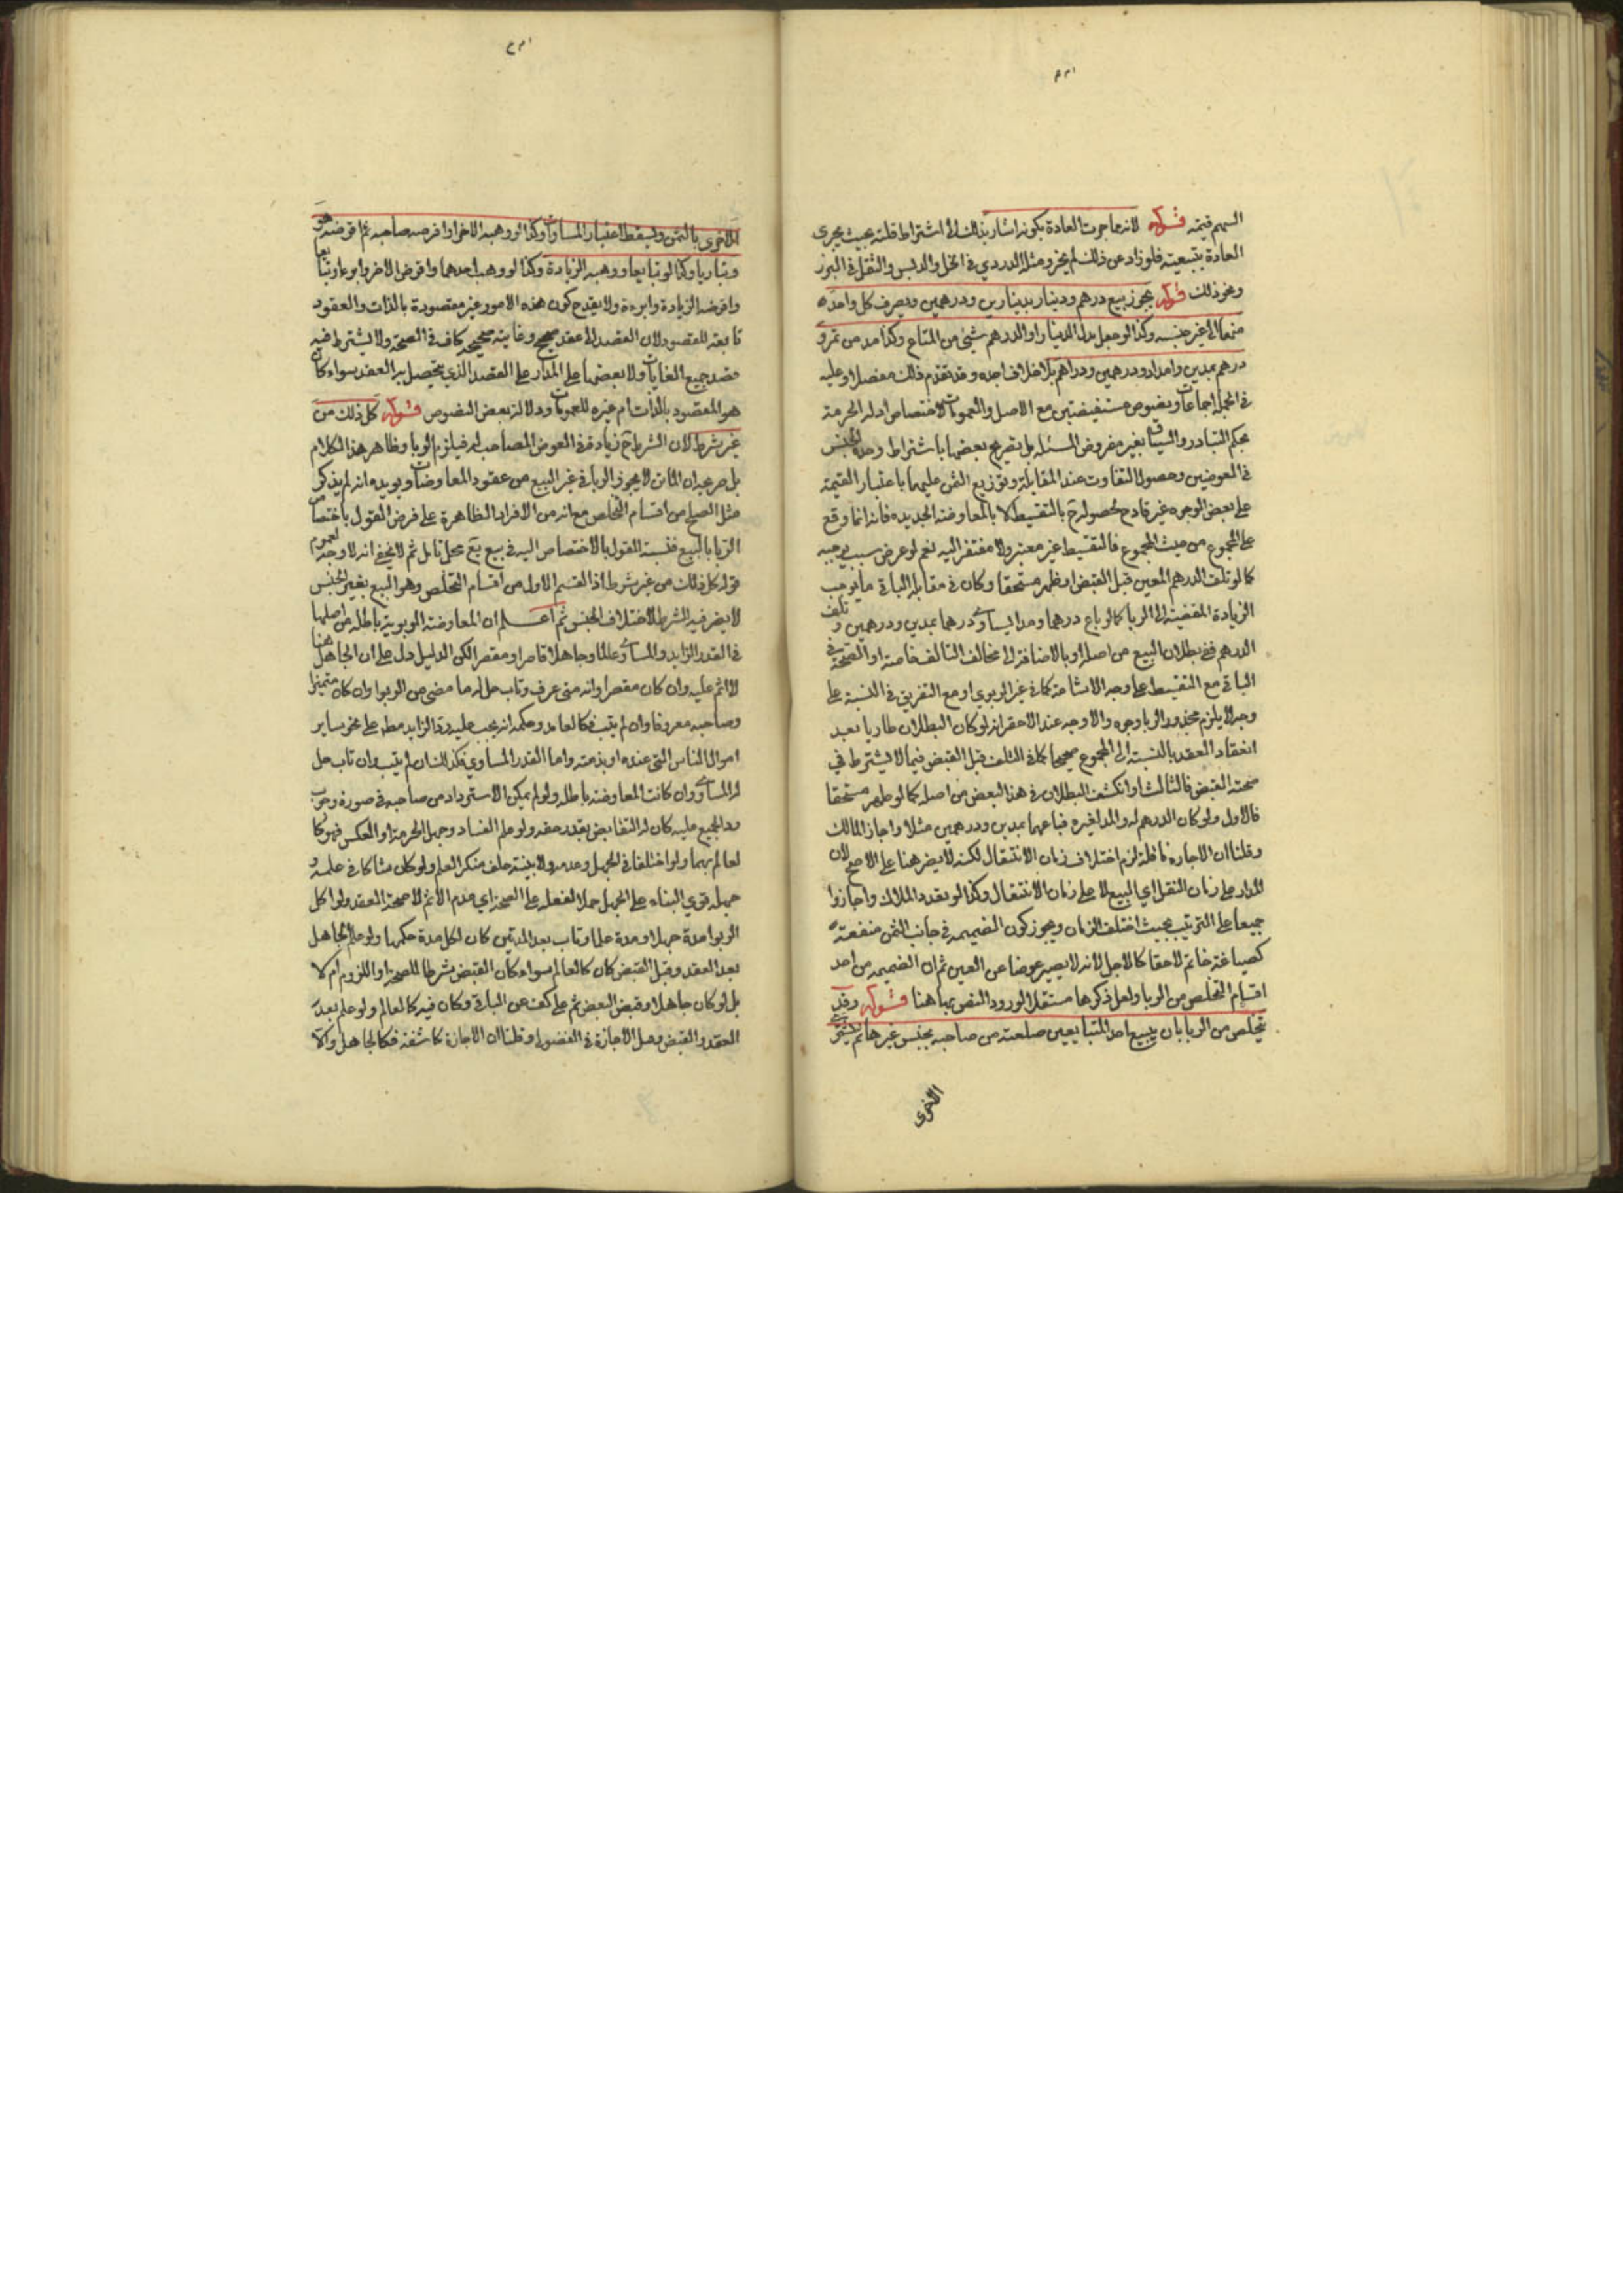 السهم قيمته قوله لانها جرت العادة بكونه اشار بذلك الى اشتراط قلته بحيث يجرى
العادة بتبعيته فلو زاد عن ذلك لم يجز ومثله الدردي في الخل والدبس والثفل في البزر
ونحو ذلك قوله يجوز بيع درهم ودينار بدينارين ودرهمين ويصرف كل واحد
منهما الى غير جنسه وكذا لو جعل بدل الدينار او الدرهم شيئ من المتاع وكذا مد من تمر و
درهم بمدين وامداد ودرهمين ودراهم بلا خلاف اجده وقد تقدم ذلك مفصلا وعليه
في الجملة اجماعات ونصوص مستفيضتين مع الاصل والعمومات لاختصاص ادلة الحرمة
بحكم التبادر والسياق بغير مفروض المسئلة بل تصريح بعضها باشتراط وحدة الجنس
في العوضين وحصول التفاوت عند المقابلة وتوزيع الثمن عليهما باعتبار القيمة
على بعض الوجوه غير قادح لحصوله ح بالتقسيط لا بالمعاوضة الجديده فانه انما وقع
على المجموع من حيث المجموع فالتقسيط غير معتبر ولا مفتقر اليه نعم لو عرض سبب يوجبه
كما لو تلف الدرهم المعين قبل القبض او ظهر مستحقا وكان في مقابلة الباقي ما يوجب
الزيادة المفضية الى الربا كما لو باع درهما ومدا يساوى درهما بمدين ودرهمين وتلف
الدرهم ففي بطلان البيع من اصله او بالاضافة الى مخالف التالف خاصة او الصحة في
الباقي مع التقسيط على وجه الاشاعة كما في غير الربوي او مع التفريق في النسبة على
وجه لا يلزم محذور الربا وجوه والاوجه عند الاحقر انه لو كان البطلان طاريا بعد
انعقاد العقد بالنسبة الى المجموع صحيحا كما في التلف قبل القبض فيما لا يشترط في
صحته القبض فالثالث او انكشف البطلان في هذا البعض من اصله كما لو ظهر مستحقا
فالاول ولو كان الدرهم له والمد لغيره فباعهما بمدين ودرهمين مثلا واجاز المالك
وقلنا ان الاجازة ناقلة لزم اختلاف زمان الانتقال لكنه لا يضر هنا على الاصح لان
المدار على زمان النقل اي البيع لا على زمان الانتقال وكذا لو تعدد الملاك واجازوا
جميعا على الترتيب بحيث اختلف الزمان ويجوز كون الضميمه في جانب الثمن منفعته
كصياغة خاتم لاحقا كالاجل لانه لا يصير عوضا عن العين ثم ان الضميمه من احد
اقسام التخلص من الربا ولعل ذكرها مستقلا لورود النص بها هنا قوله وقد
يتخلص من الربا بان يبيع احد المتبايعين سلعته من صاحبه بجنس غيرها ثم يشترى
الاخرى
الاخرى بالثمن ويسقط اعتبار المساوات وكذا لو وهبه الاخر او اقرضه صاحبه ثم اقرضه هو
وتباريا وكذا لو تبايعا ووهبه الزيادة وكذا لو وهب احدهما واقرض الاخر وابرءه او تبايعا
واقرضه الزيادة وابرءه ولا يقدح كون هذه الامور غير مقصودة بالذات والعقود
تابعة للقصود لان القصد الى عقد صحيح وغاية صحيحة كاف في الصحة ولا يشترط فيه
قصد جميع الغايات ولا بعضها على المدار على القصد الذي يتحصل به العقد سواء كان
هو المقصود بالذات ام غيره للعمومات ودلالة بعض النصوص قوله كل ذلك من
غير شرط لان الشرط ح زيادة في العوض المصاحب له فيلزم الربا وظاهر هذا الكلام
بل صريحه ان الماتن لا يجوز الربا في غير البيع من عقود المعاوضات ويؤيده انه لم يذكر
مثل الصلح من اقسام التخلص مع انه من الافراد الظاهرة على فرض القول باختصاص
الربا بالبيع فنسبة القول بالاختصاص اليه في بيع يع محل تامل ثم لا يخفى انه لا وجه لعموم
قوله كل ذلك من غير شرط اذ القسم الاول من اقسام التخلص وهو البيع بغير الجنس
لا يضر فيه الشرط لاختلاف الجنس ثم اعلم ان المعاوضة الربوية باطلة من اصلها
في القدر الزايد والمساوى عالما وجاهلا قاصرا ومقصرا لكن الدليل دل على ان الجاهل هنا
لا اثم عليه وان كان مقصرا وانه متى عرف وتاب حل له ما مضى من الربوا وان كان متميزا
وصاحبه معروفا وان لم يتب فكالعامد وحكمه انه يجب عليه رد الزايد مطم على نحو ساير
اموال الناس التي عنده او بذمته واما القدر المساوي فكذلك ان لم يتب وان تاب حل
له المساوى وان كانت المعاوضة باطلة ولو لم يمكن الاسترداد من صاحبه في صورة وجوب
رد الجميع عليه كان له التقابض بقدر حقه ولو علم الفساد وجهل الحرمة او العكس فهو كا
لعالم بهما ولو اختلفا في الجهل وعدمه ولا بينة حلف منكر العلم ولو كان شاكا في علمه و
جهله قوي البناء على الجهل حملا لفعله على الصحة اي عدم الاثم لا صحة العقد ولو اكل
الربوا مدة جهلا ومدة علما وتاب بعد المدتين كان لكل مدة حكمها ولو علم الجاهل
بعد العقد وقبل القبض كان كالعالم سواء كان القبض شرطا للصحة او اللزوم ام لا
بل لو كان جاهلا وقبض البعض ثم علم كف عن الباقي وكان فيه كالعالم ولو علم بعد
العقد والقبض وقبل الاجازة في الفضولي وقلنا ان الاجازة كاشفة فكالجاهل والا